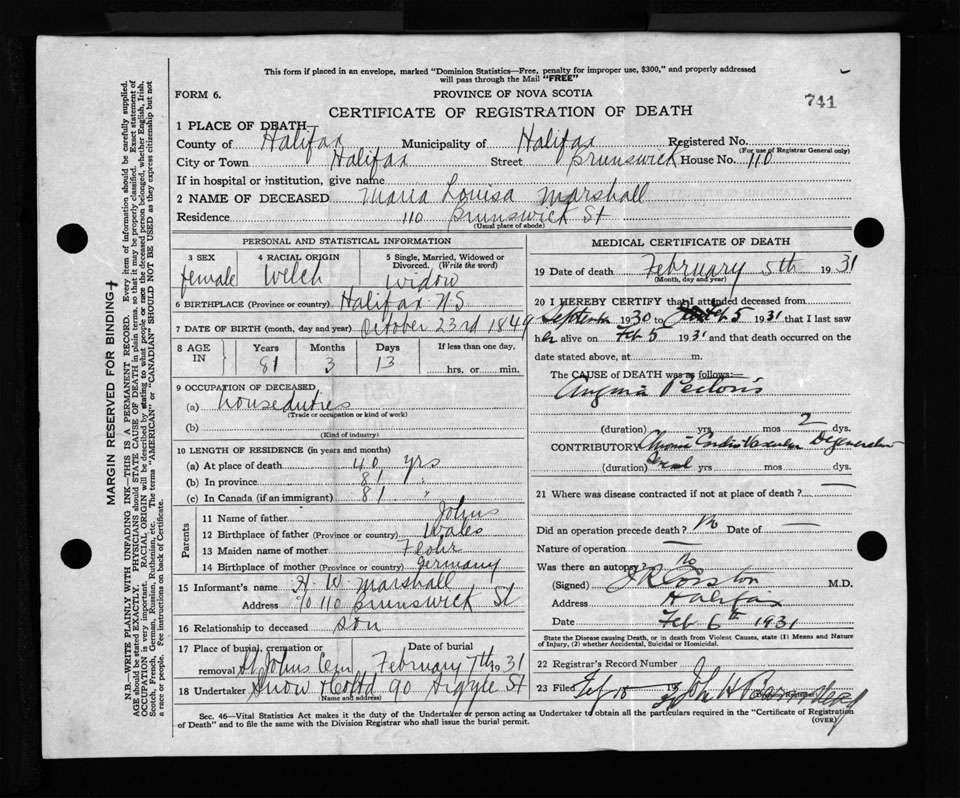 This form if placed in an envelope, marked "Dominion Statistics—Free, penalty for improper use, $300," and properly addressed
will pass through the Mail "FREE"
FORM 6. PROVINCE OF NOVA SCOTIA 741
CERTIFICATE OF REGISTRATION OF DEATH
1 PLACE OF DEATH
County of Halifax Municipality of Halifax Registered No.
(For use of Registrar General only)
City or Town Halifax Street Brunswick House No. 110
If in hospital or institution, give name
2 NAME OF DECEASED Maria Louisa Marshall
Residence 110 Brunswick St
(Usual place of abode)
PERSONAL AND STATISTICAL INFORMATION
3 SEX 4 RACIAL ORIGIN 5 Single, Married, Widowed or
Divorced. (Write the word)
female Welch widow
6 BIRTHPLACE (Province or country) Halifax N S
7 DATE OF BIRTH (month, day and year) October 23rd 1849
8 AGE IN Years Months Days If less than one day,
81 3 13 hrs. or min.
9 OCCUPATION OF DECEASED
(a) housedutres
(Trade or occupation or kind of work)
(b)
(Kind of industry)
10 LENGTH OF RESIDENCE (in years and months)
(a) At place of death 40 yrs
(b) In province 81 "
(c) In Canada (if an immigrant) 81 "
Parents
11 Name of father Johns
12 Birthplace of father (Province or country) Wales
13 Maiden name of mother Flohr
14 Birthplace of mother (Province or country) Germany
15 Informant's name H. W. Marshall
Address % 110 Brunswick St
16 Relationship to deceased son
17 Place of burial, cremation or Date of burial
removal St Johns Cem February 7th 1931
18 Undertaker Snow & Co Ltd 90 Argyle St
(Name and address)
MEDICAL CERTIFICATE OF DEATH
19 Date of death February 5th 1931
(Month, day and year)
20 I HEREBY CERTIFY that I attended deceased from
September 1930 to Feb 5 1931 that I last saw
her alive on Feb 5 1931 and that death occurred on the
date stated above, at m.
The CAUSE of DEATH was as follows:—
Angina Pectoris
(duration) yrs mos 2 dys.
CONTRIBUTORY Chronic Cardio Vascular Degeneration
(duration) yrs mos dys.
21 Where was disease contracted if not at place of death? —
Did an operation precede death? No Date of —
Nature of operation —
Was there an autopsy? No
(Signed) M.D.
Address Halifax
Date Feb 6th 1931
State the Disease causing Death, or in death from Violent Causes, state (1) Means and Nature
of Injury, (2) whether Accidental, Suicidal or Homicidal.
22 Registrar's Record Number
23 Filed Feb 10 19 John H
Sec. 46—Vital Statistics Act makes it the duty of the Undertaker or person acting as Undertaker to obtain all the particulars required in the "Certificate of Registration
of Death" and to file the same with the Division Registrar who shall issue the burial permit. (OVER)
MARGIN RESERVED FOR BINDING
N.B.—WRITE PLAINLY WITH UNFADING INK—THIS IS A PERMANENT RECORD. Every item of information should be carefully supplied.
AGE should be stated EXACTLY. PHYSICIANS should STATE CAUSE OF DEATH in plain terms, so that it may be properly classified. Exact statement of
OCCUPATION is very important. RACIAL ORIGIN will be described by stating to what people or race the deceased person belonged, whether English, Irish,
Scotch, French, German, Russian, Ruthenian, etc. The terms "AMERICAN" or "CANADIAN" SHOULD NOT BE USED as they express citizenship but not
a race or people. See instructions on back of Certificate.